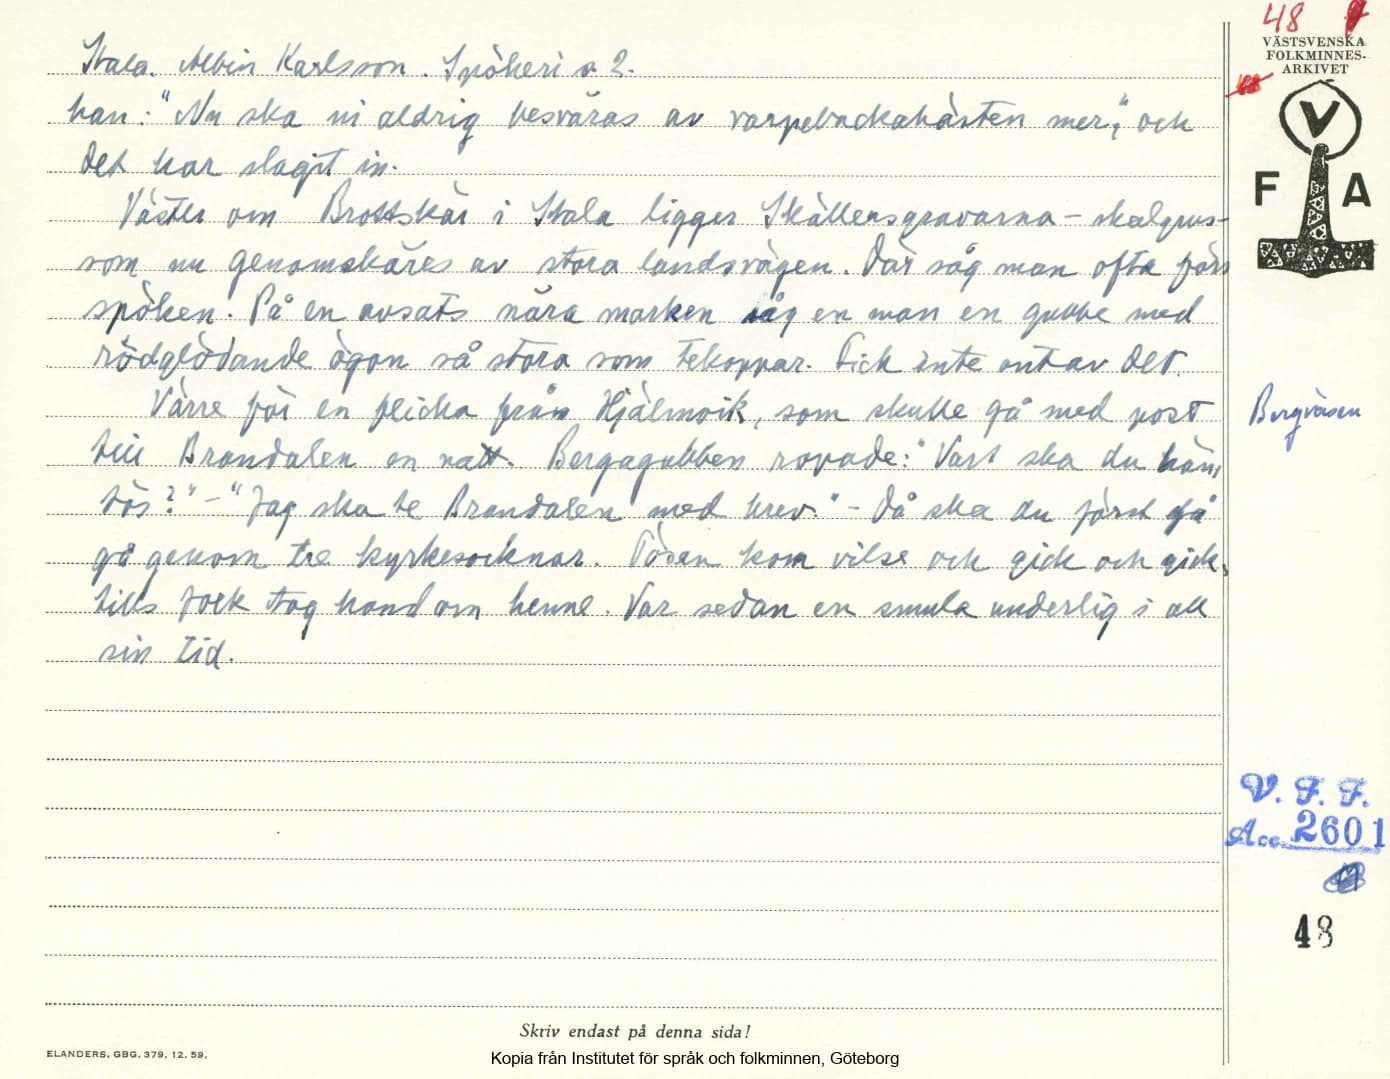 Stala. Albin Karlsson. Spökeri s 2.
han: "Nu ska ni aldrig besväras av varpebackahästen mer", och
det har slagit in.
Väster om Brottskär i Stala ligger Skällersgravarna - skalgrus-
som nu genomskäres av stora landsvägen. Där såg man ofta förr
spöken. På en avsats nära marken såg en man en gubbe med
rödglödande ögon så stora som tekoppar. Fick inte ont av det.
Värre för en flicka från Hjälmvik, som skulle gå med post
till Brandalen en natt. Bergagubben ropade: "Vart ska du hän,
tös?" - "Jag ska te Brandalen med brev." - Då ska du först gå
gå genom tre kyrkesocknar. Tösen kom vilse och gick och gick,
tills folk tog hand om henne. Var sedan en smula underlig i all
sin tid.
48
VÄSTSVENSKA
FOLKMINNES-
ARKIVET
V
F A
Bergväsen
V. F. F.
Acc. 2601
48
Skriv endast på denna sida!
ELANDERS, GBG. 379. 12. 59.
Kopia från Institutet för språk och folkminnen, Göteborg